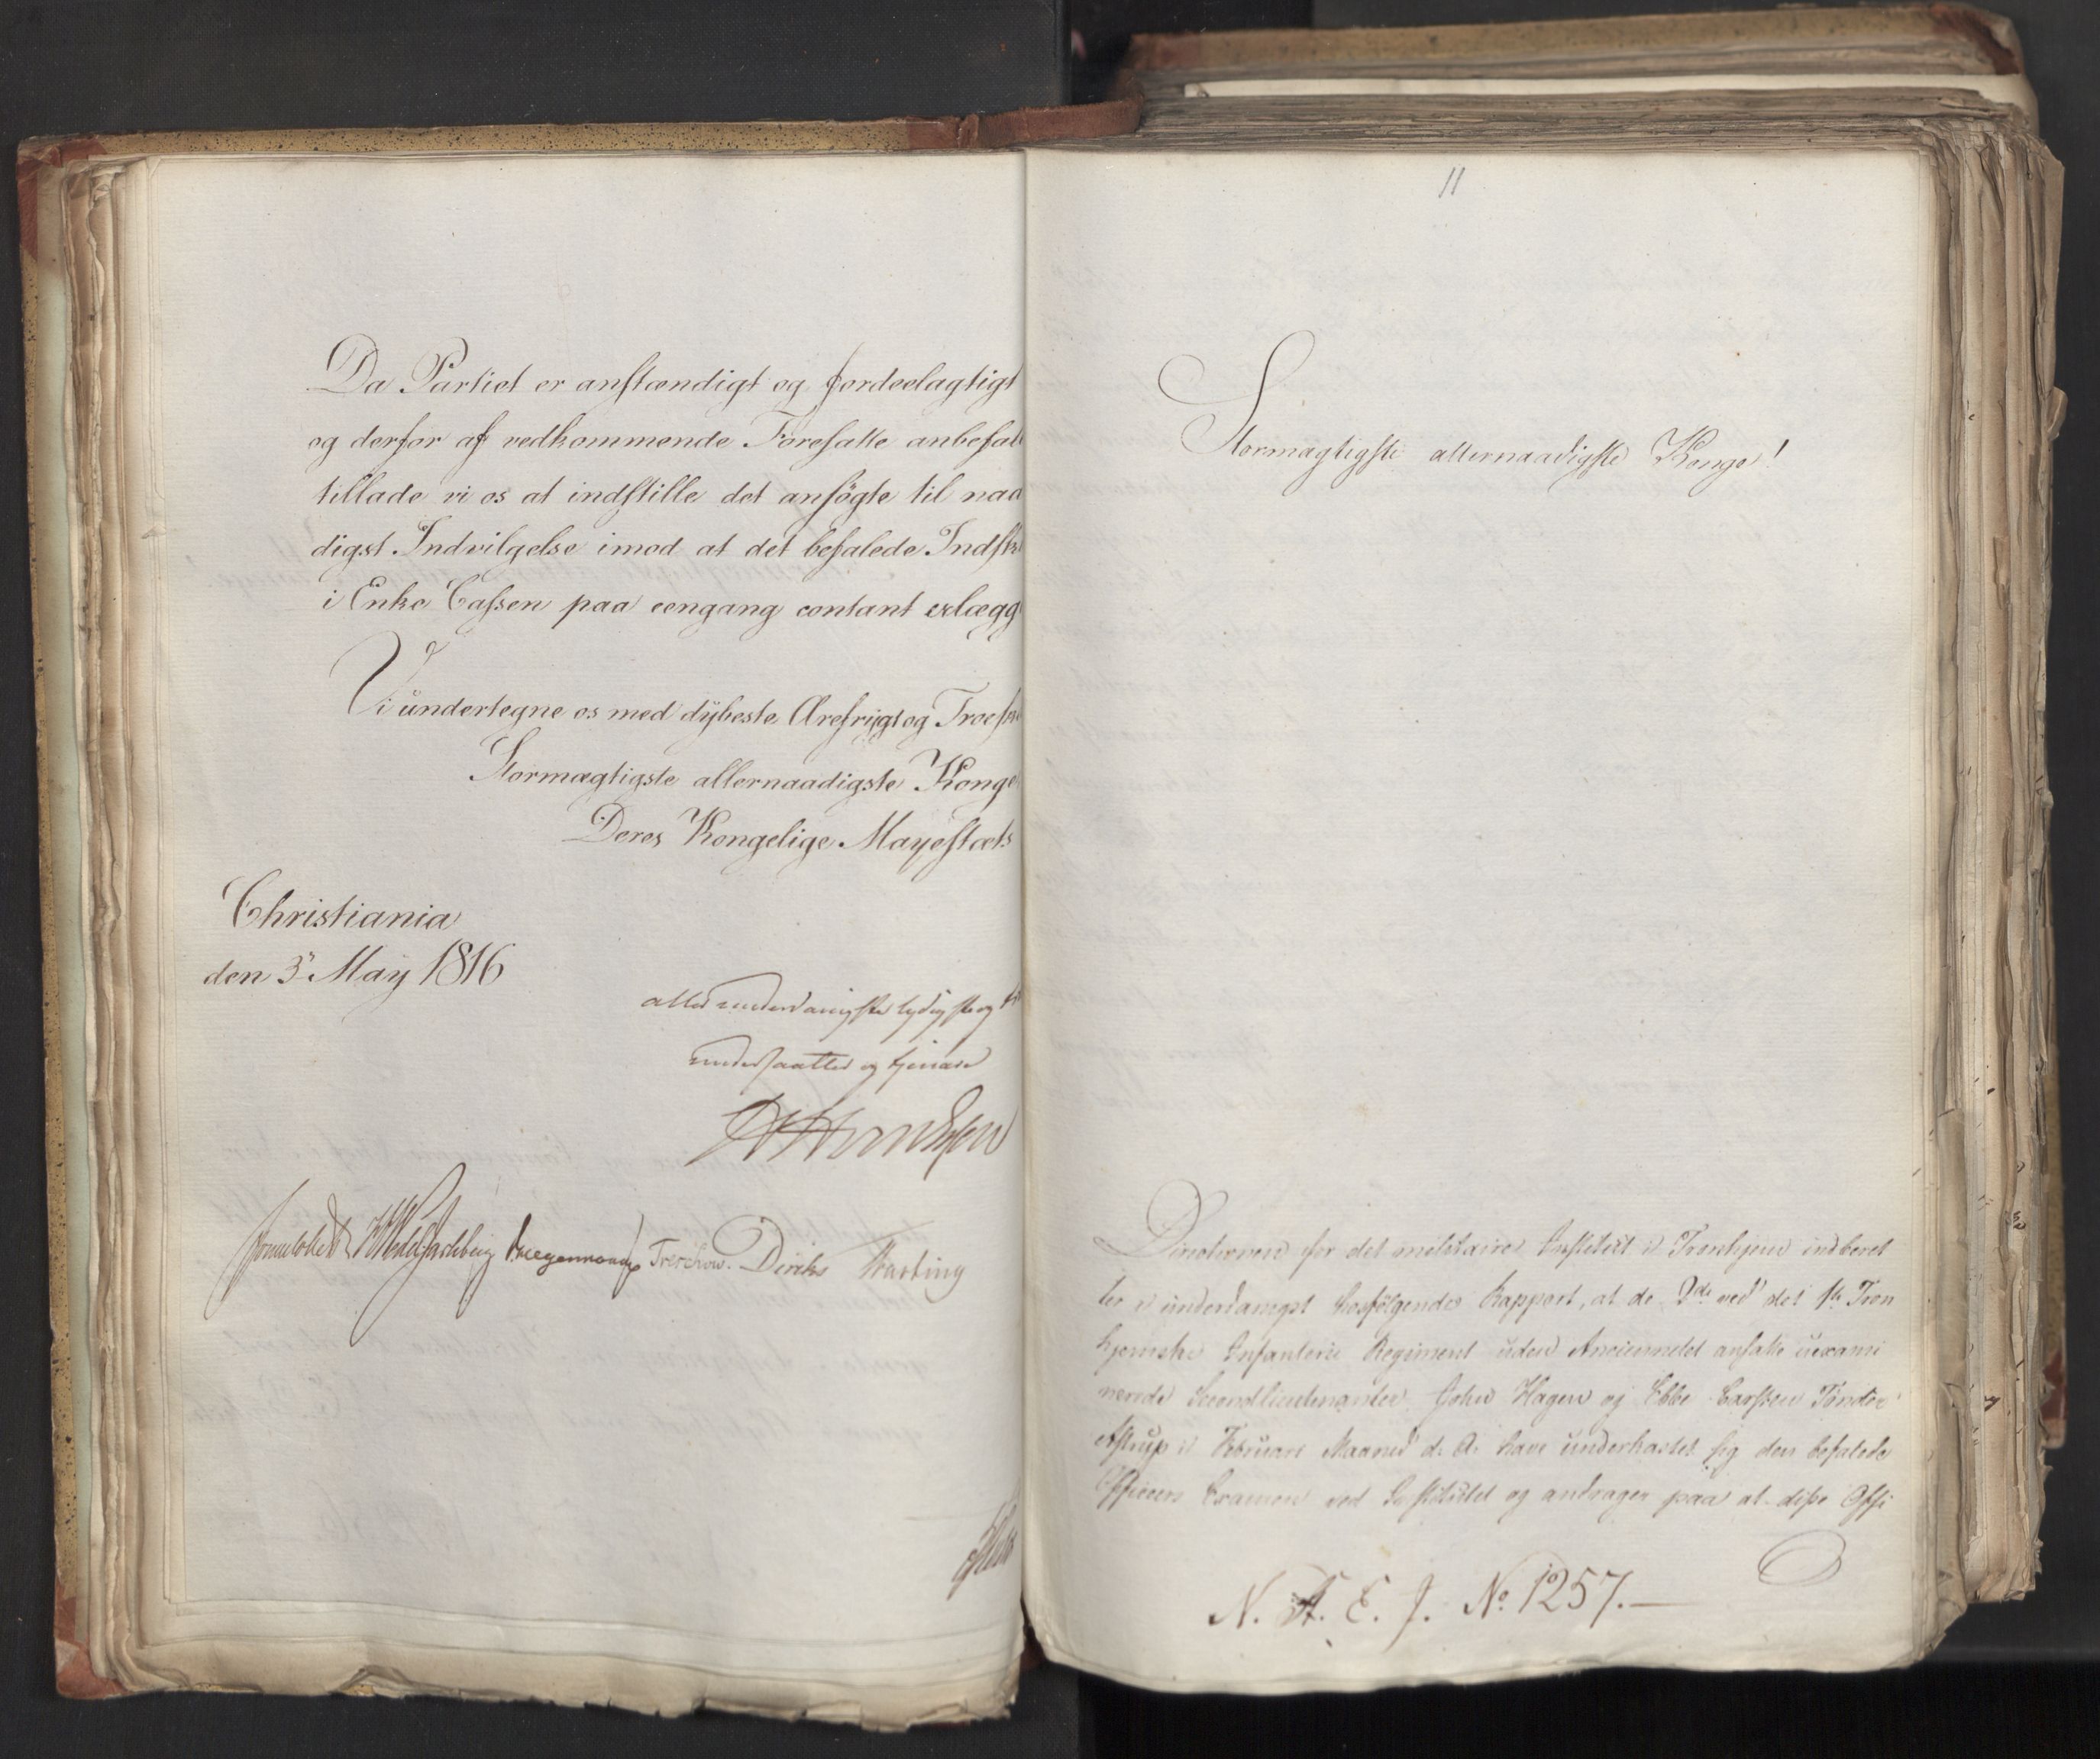 Da Partiet er anstændigt og fordeelagtigt
og derfor af vedkommende Foresatte anbefal
tillade vi os at indstille det ansögte til naa
digst Indvilgelse imod at det befalede Indsk
i Enke Cassen paa eengang contant erlægg
Vi undertegne os med dÿbeste Ærefrÿgt og Troes
Stormægtigste allernaadigste Konge
Deres Kongelige Mayestæts
Christiania
den 3 Maÿ 1816
allerunderdanigste lydigste og
undersaatter og tjenere
Sommerhielm Wedel Jarlsberg Krogh Treschow Diriks Motzfeldt
11
Stormægtigste allernaadigste Konge!
Directeuren for det militaire Institut i Tronhjem indberet
ter i underdanigst hosfölgende Rapport, at de 2de ved det 1te Tron
hjemske Infanterie Regiment uden Anciennitet ansatte uexami
nerede Secondlieutenanter John Hagen og Ebbe Carsten Tönder
Astrup i Februari Maaned d. A. have underkastet sig den befalede
Officeers Examen ved Institutet og andrager paa at disse Offi
N. A. E. J. No. 1257.